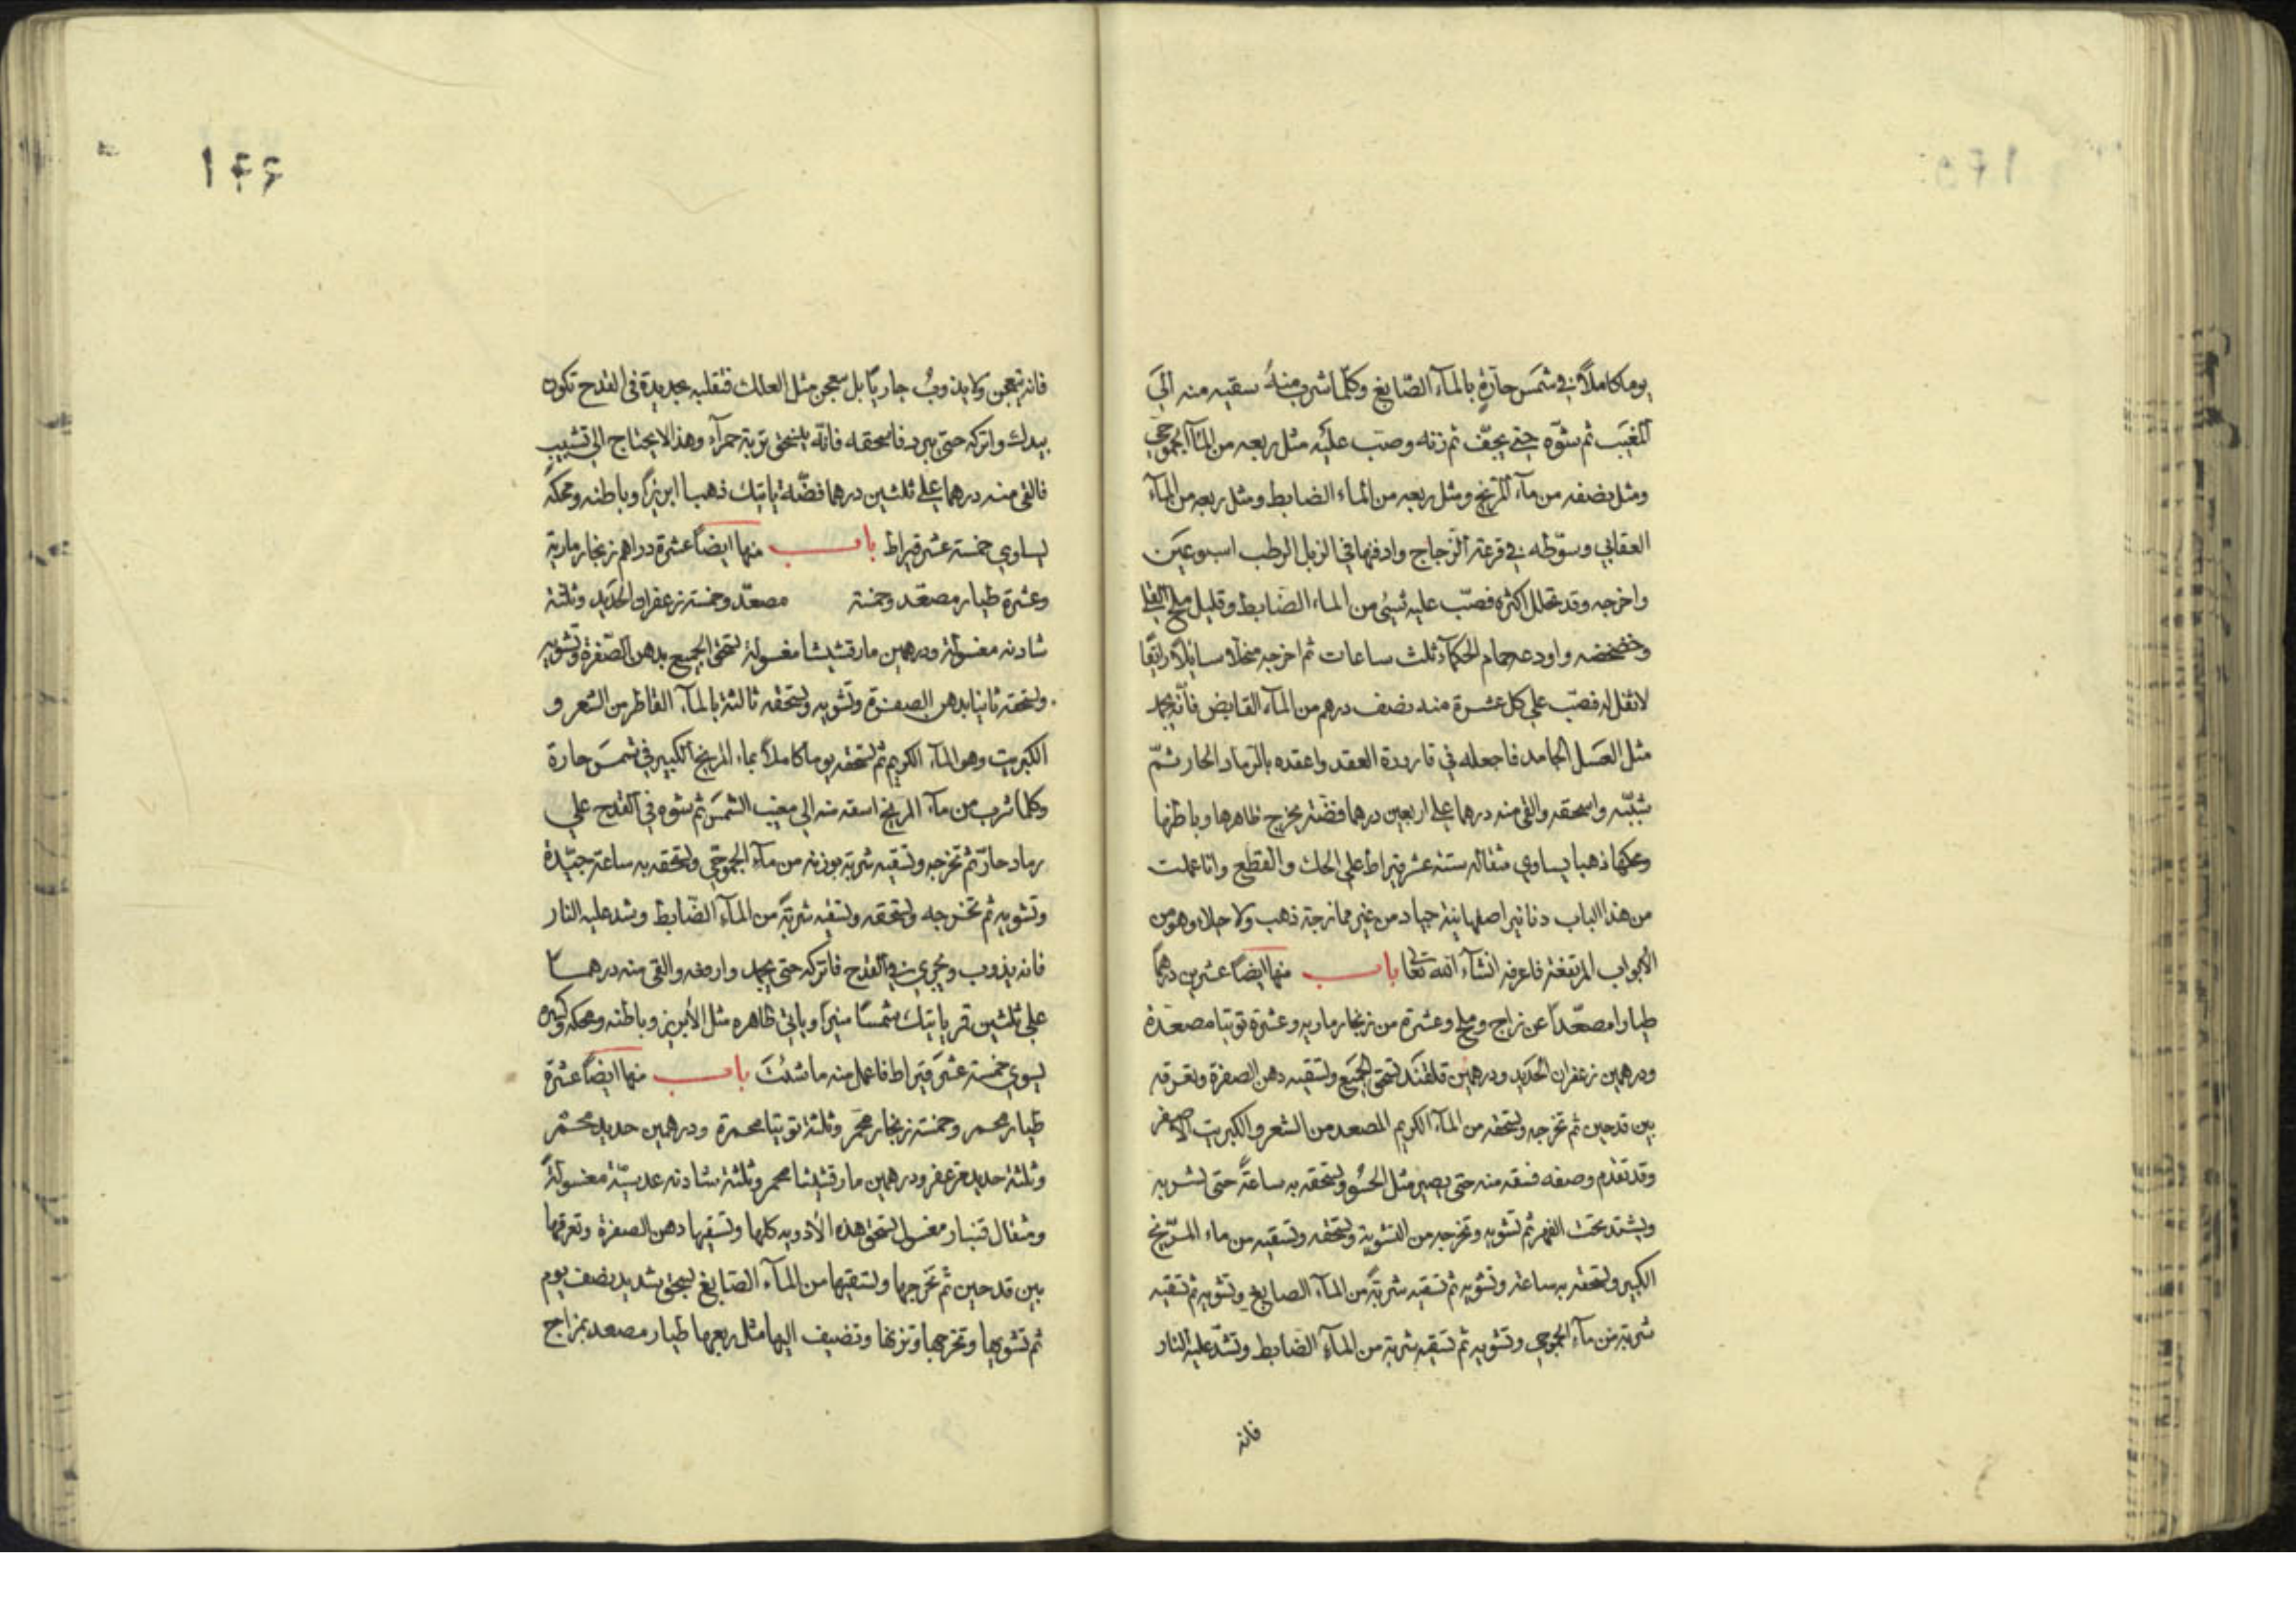 يوما كاملاً في شمس حارة بالمآء الصّابغ وكلّما شرب منهُ سقيه منه الي
المغيب ثم شوّه حتي يجفّ ثم زنه وصب عليه مثل ربعه من المآ
ومثل نصفه من مآء المريخ ومثل ربعه من المآء الضابط ومثل ربعه من المآء
العقابي وسوّطه في قرعة الزجاج وادفنها في الزبل الرطب اسبوعين
واخرجه وقد تحلل اكثره فصبّ عليه شيئ من المآء الضابط وقليل ملح القلي
وخضخضه واودعه حمام الحكمآء ثلث ساعات ثم اخرجه منحلا سائلاً رائقًا
لا ثفل له فصب علي كل عشرة منه نصف درهم من المآء القابض فانّه يجمد
مثل العسل الجامد فاجعله في قارورة العقد واعقده بالرماد الحار ثمّ
شبّبه واسحقه والقي منه درهما علي اربعين درهما فضّة يخرج ظاهرها وباطنها
ومحكها ذهبا يساوي مثقاله ستة عشر قيراط علي الحك والقطع وانا عملت
من هذا الباب دنانير اصفهانية جياد من غير ممازجة ذهب ولا حلاء وهو من
الأبواب المرتفعة فاعرفه انشآء الله تعا باب منها ايضًا عشرين درهماً
طيارا مصعّداً عن زاج وملح وعشرة من زنجار ماريه وعشرة توتيا مصعدة
ودرهمين زعفران الحديد ودرهمين قلقند تسحق الجميع وتسقيه دهن الصفرة وتعرقه
بين قدحين ثم تخرجه وتسحقه من المآء الكريم المصعد من الشعر والكبريت الاصفر
وقد تقدم وصفه فسقه منه حتي يصير مثل الحسُو وتسحقه به ساعةً حتى تشربه
ويشتد تحت الفهر ثم تشويه وتخرجه من التشوية وتسحقه وتسقيه من ماء المرّيخ
الكبير وتسحقه به ساعة وتشويه ثم تسقيه شربةً من المآء الصابغ وتشويه ثم تسقيه
شربة من مآء وتشويه ثم تسقيه شربة من المآء الضابط وتشدّ عليه النار
فانه
١٤٦
فانه يتعجن ولا يذوبُ جاريًا بل يتعجن مثل العلك فتقلبه بحديدة في القدح تكون
بيدك واتركه حتى يبرد فاسحقه فانّه ينسحق تربة حمرآء وهذا لا يحتاج الي تشبيب
فالقي منه درهما علي ثلثين درهما فضّة ياتيك ذهبا ابريزًا وباطنه ومحكه
يساوي خمسة عشر قيراط باب منها ايضاً عشرة دراهم زنجار مارية
وعشرة طيار مصعّد وخمسة مصعّد وخمسة زعفران الحديد وثلثة
شادنه مغسولة ودرهمين مارقشيشا مغسولة تسحق الجميع بدهن الصّفرة وتشويه
وتسحقه ثانيا بدهن الصفرة وتشويه وتسحقه ثالثة بالمآء القاطر من الشعر و
الكبريت وهو المآء الكريم ثم تسحقه يوما كاملاً بماء المريخ الكبير في شمس حارة
وكلما شرب من مآء المريخ اسقه منه الي مغيب الشمس ثم شوه في القدح علي
رماد حارّ ثم تخرجه وتسقيه شربة بوزنه من مآء وتسحقه به ساعة جيّدة
وتشويه ثم تخرجه وتسحقه وتسقه شربةً من المآء الضّابط وشد عليه النار
فانه يذوب ويجري في القدح فاتركه حتى يجمد وارفعه والقي منه درهما
علي ثلثين قمر ياتيك شمسًا منيراً وياتي ظاهره مثل الأبريز وباطنه ومحكه وكسره
يسوي خمسة عشر قيراط فاعمل منه ما شئت باب منها ايضاً عشرة
طيار محمر وخمسة زنجار محمّر وثلثة توتيا محمرة ودرهمين حديد محمّر
وثلثة حديد مزعفر ودرهمين مارقشيثا محمر وثلثة شادنه عدسيّة مغسولةً
ومثقال قنبار مغسول تسحق هذه الأدويه كلها وتسقيها دهن الصفرة وتعرقها
بين قدحين ثم تخرجها وتسقيها من المآء الصّابغ بسحق شديد نصف يوم
ثم تشويها وتخرجها وتزنها وتضيف اليها مثل ربعها طيار مصعد بزاج